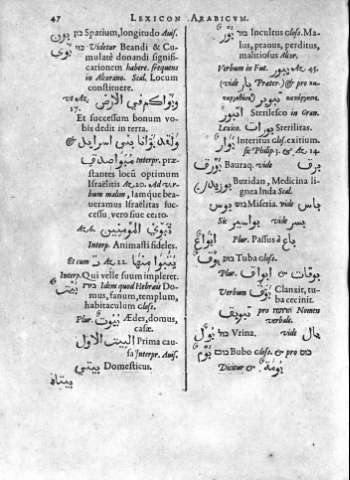 47 LEXICON ARABICVM.
בין Spatium, longitudo Avis. بون
Videtur Beandi & Cu- بوى
mulatè donandi signifi-
cationem habere. frequens
in Alcorano. Scal. Locum
constituere.
ut Az. وبواكم في الارض
27.
Et successum bonum vo-
bis dedit in terra.
ولقد بوانا بنى اسرايل &
مبوا صدق Interpr. præ-
stantes locû optimum
Israëlitis Az. 20. Ad ver-
bum malim, Iamque bea-
veramus Israëlitas suc-
cessu, vero sive certo.
Az. تبوى المومنين
Interp. Animasti fideles.
Et cum Az. 22. يتبوا منها
Interp. Qui velle suum impleret.
Idem quod Hebraïs Do- بيت
mus, fanum, templum,
habitaculum Gloss.
Plur. بيوت Ædes, domus,
casæ.
البيت الاول Prima cau-
sa Interpr. Avis.
بيتي Domesticus.
بيتاه
בור Incultus Gloss. Ma- بور
lus, pravus, perditus,
malitiosus Alcor.
Verbum in Fut. يبور Az. 45.
(vide بار Præter.) & pro na-
يبوير
ابتور Sterilesco in Gran.
Lexico. بورات Sterilitas.
Interitus Gloss. exitium.
sic Philip. 3. & Az. 14.
بورق Bauraq. vide برق
بوزيدان Buzidan, Medicina li-
gnea Inda Scal.
بوس Miseria. vide باس
Sic بواسير vide بسر
ابواع Plur. Passus à باع
بوق Tuba Gloss.
Plur. ابواق & بوقات
Verbum بوق Clanxit, tu-
ba cecinit.
تبويق pro Nomen
verbale.
بول Vrina. vide بال
בום Bubo Gloss. & pro בום بوم
Dicitur & بومة.